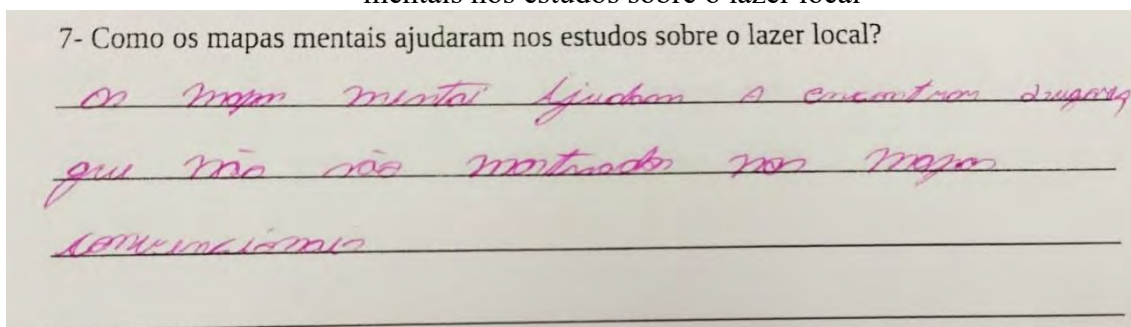 mentais nos estudos sobre o lazer local
7- Como os mapas mentais ajudaram nos estudos sobre o lazer local?
os mapas mentai ajudam a encontrar lugares
que não são mostrados nos mapas
convencionais